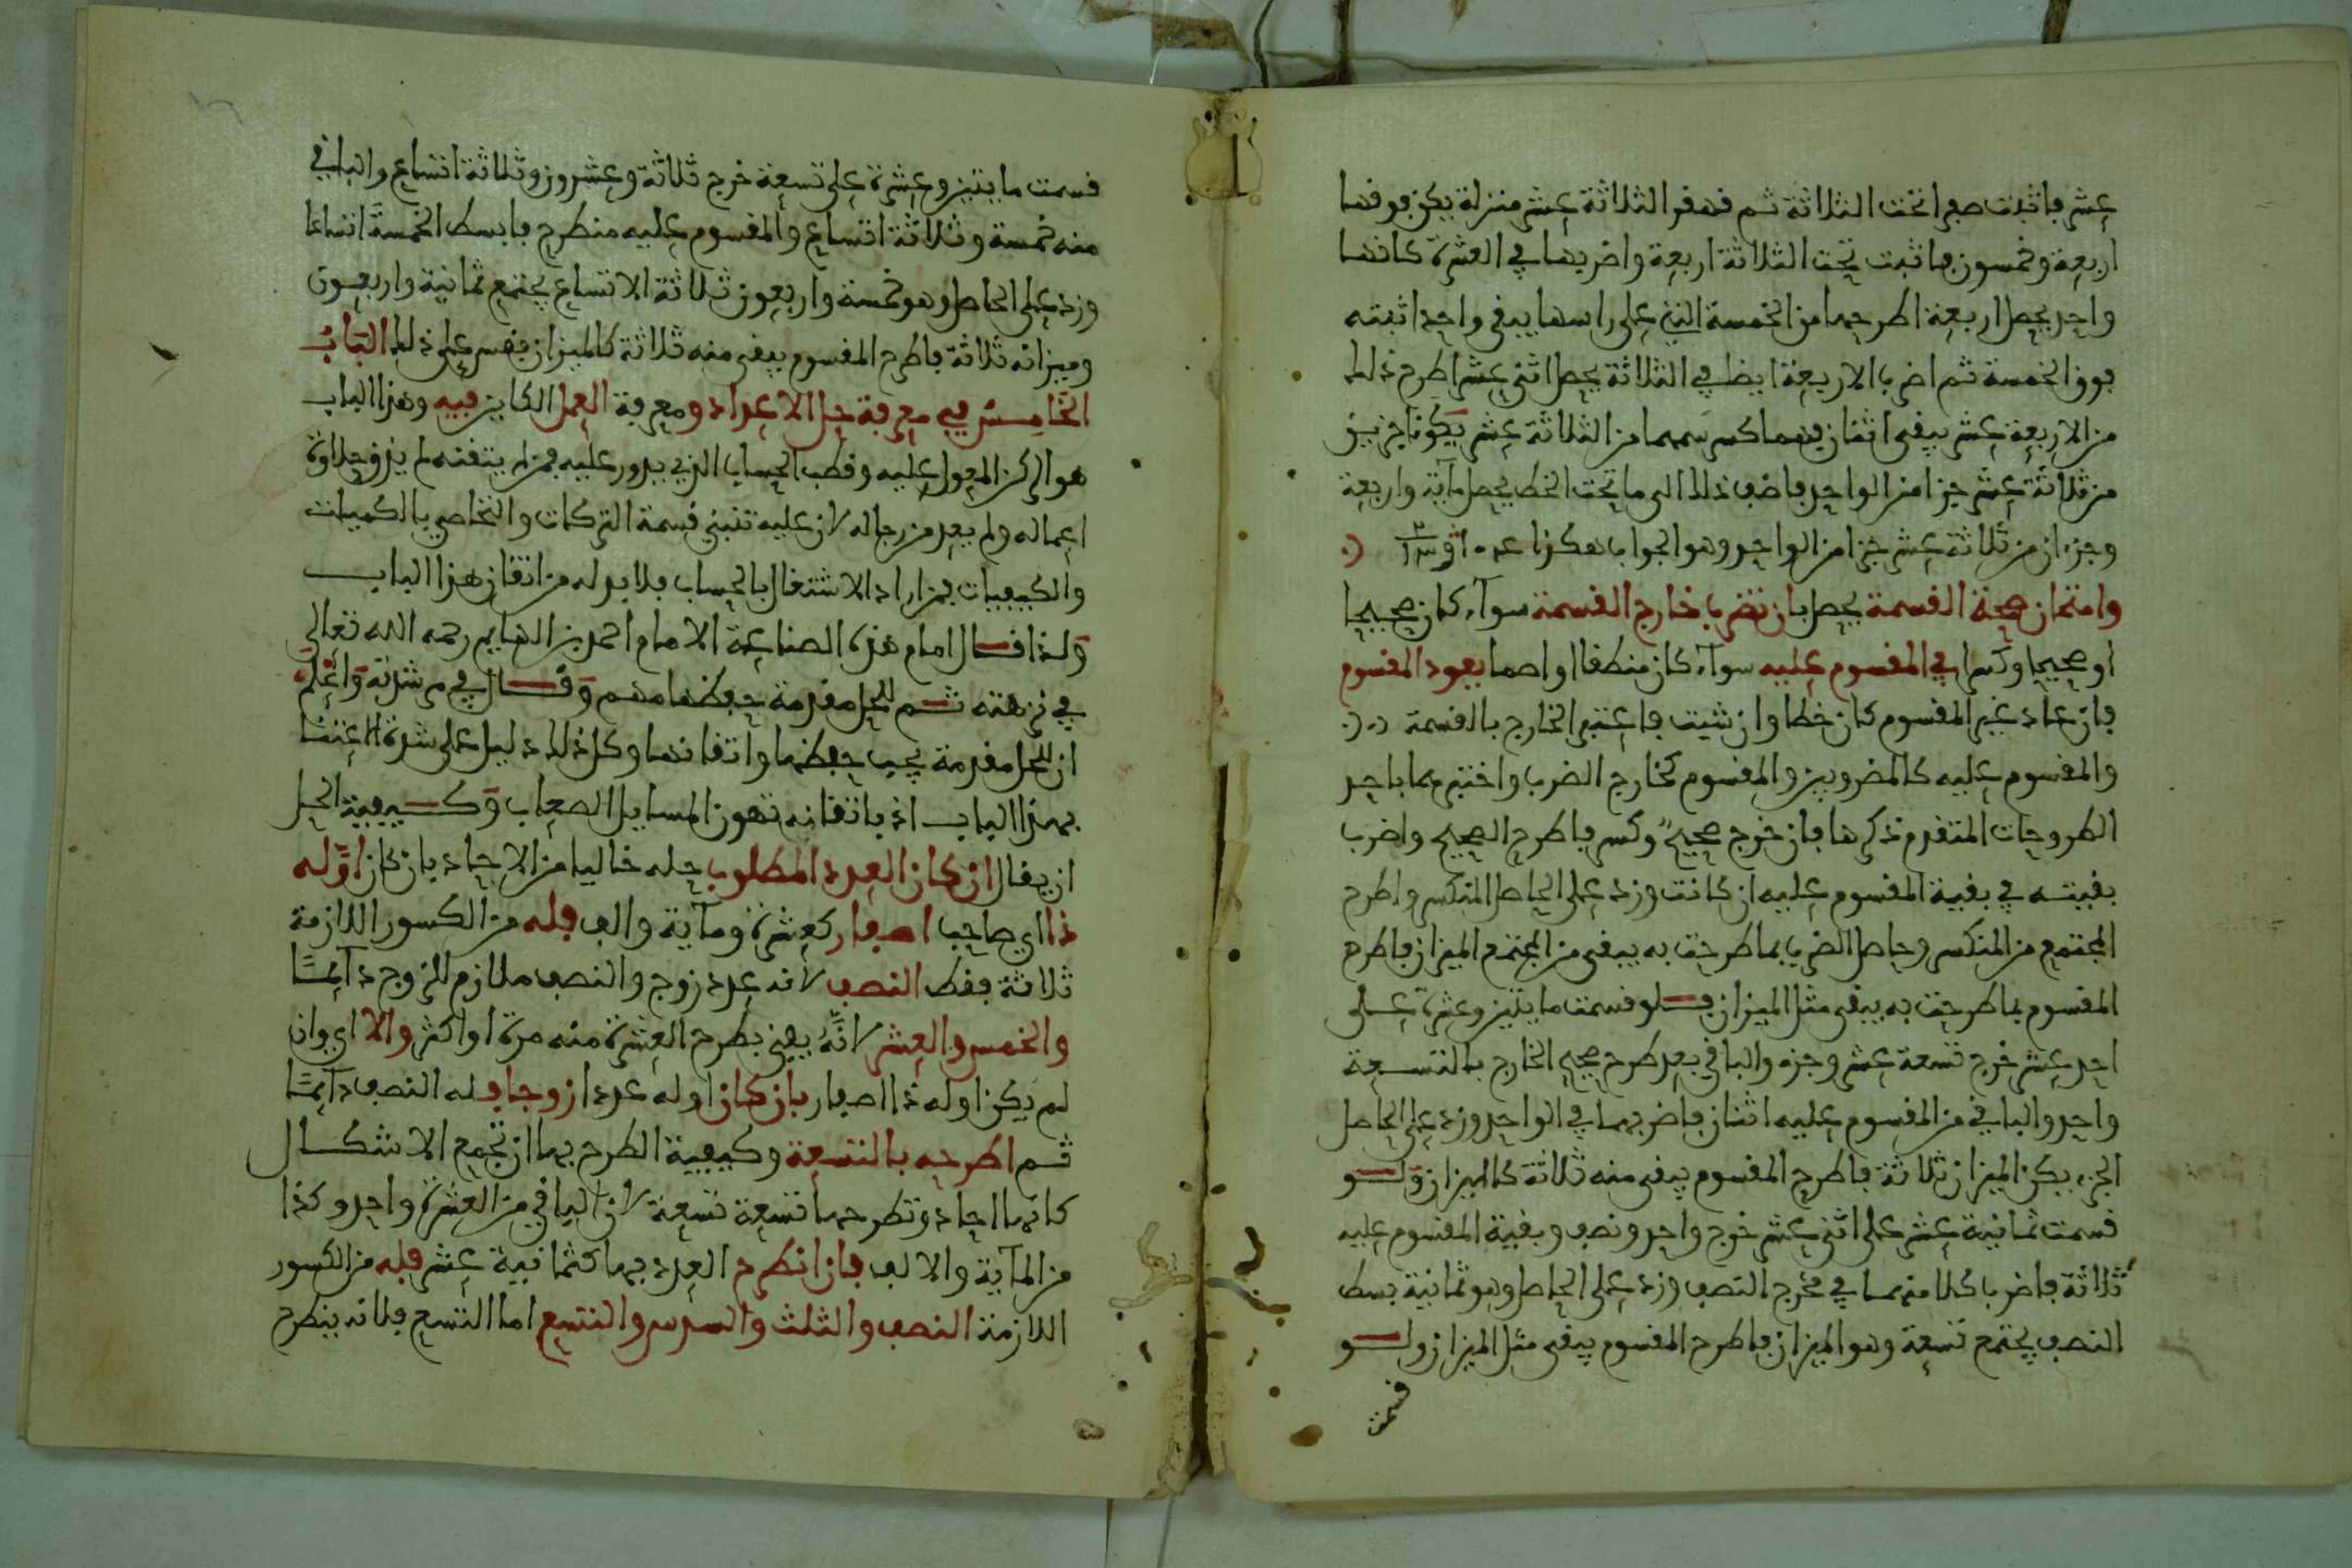 عشر فاثبت صفرا تحت الثلاثة ثم فهقر الثلاثة عشر منزلة يكن فوقها
اربعة وخمسون فاثبت تحت الثلاثة اربعة واضربها في العشرة كانها
واحد يحصل اربعة اطرحها من الخمسة التي على راسها يبقى واحد اثبته
فوق الخمسة ثم اضرب الاربعة ايظ في الثلاثة يحصل اثنى عشر اطرح ذلك
من الاربعة عشر يبقى اثنان فهما كسر سمهما من الثلاثة عشر يكونا جزين
من ثلاثة عشر جزا من الواحد فاضف ذلك الى ما تحت الخط يحصل مآية واربعة
وجزءان من ثلاثة عشر جزا من الواحد وهو الجواب هكذا
وامتحان صحة القسمة يحصل بان تضرب خارج القسمة سوآء كان صحيحا
او صحيحا وكسرا في المقسوم عليه سوآء كان منطقا او اصما يعود المقسوم
فان عاد غير المقسوم كان خطا وان شيت فاعتبر الخارج بالقسمة
والمقسوم عليه كالمضروبين والمقسوم كخارج الضرب واختبرهما باحد
الطروحات المتقدم ذكرها فان خرج صحيح وكسر فاطرح الصحيح واضرب
بقيته في بقية المقسوم عليه ان كانت وزد على الحاصل المنكسر واطرح
المجتمع من المنكسر وحاصل الضرب بما طرحت به يبقى من المجتمع الميزان فاطرح
المقسوم بما طرحت به يبقى مثل الميزان فلو قسمت مايتين وعشرة على
احد عشر خرج تسعة عشر وجزء والباقي بعد طرح صحيح الخارج بالتسعة
واحد والباقي من المقسوم عليه اثنان فاضربهما في الواحد وزد على الحاصل
الجزء يكن الميزان ثلاثة فاطرح المقسوم يبقى منه ثلاثة كالميزان ولو
قسمت ثمانية عشر على اثنى عشر خرج واحد ونصف وبقية المقسوم عليه
ثلاثة فاضرب كلا منهما في مخرج النصف وزد على الحاصل وهو ثمانية بسط
النصف يجتمع تسعة وهو الميزان فاطرح المقسوم يبقى مثل الميزان ولو
قسمت
قسمت مايتين وعشرة على تسعة خرج ثلاثة وعشرون وثلاثة اتساع والباقي
منه خمسة وثلاثة اتساع والمقسوم عليه منطرح فابسط الخمسة اتساعا
وزد على الحاصل وهو خمسة واربعون ثلاثة الاتساع يجتمع ثمانية واربعون
وميزانه ثلاثة فاطرح المقسوم يبقى منه ثلاثة كالميزان فقس على ذلك الباب
الخامس في معرفة حل الاعداد ومعرفة العمل الكاين فيه وهذا الباب
هو الركن المعول عليه وقطب الحساب الذي يدور عليه فمن لم يتقنه لم يذق حلاوة
اعماله ولم يعد من رجاله لان عليه تنبني قسمة التركات والتحاصي بالكميات
والكيفيات فمن اراد الاشتغال بالحساب فلا بد له من اتقان هذا الباب
ولذا قال امام هذه الصناعة الامام احمد بن الهايم رحمه الله تعالى
في نزهته ثم للحل مقدمة حفظها مهم وقال في مرشدته واعلم
ان للحل مقدمة يجب حفظها واتقانها وكل ذلك دليل على شدة الاعتنا
بهذا الباب اذ باتقانه تهون المسايل الصعاب وكيفية الحل
ان يقال ان كان العدد المطلوب حله خاليا من الاحاد بان كان اوله
ذا اي صاحب اصفار كعشرة ومآية والف فله من الكسور اللازمة
ثلاثة فقط النصف لانه عدد زوج والنصف ملازم للزوج دآيما
والخمس والعشر لانه يفنى بطرح العشرة منه مرة او اكثر والا اي وان
لم يكن اوله ذا اصفار بان كان اوله عددا زوجا فله النصف دآيما
ثم اطرحه بالتسعة وكيفية الطرح بها ان تجمع الاشكال
كانها احاد وتطرحها تسعة تسعة لان الباقي من العشرة واحد وكذا
من المآية والالف فان انطرح العدد بها كثمانية عشر فله من الكسور
اللازمة النصف والثلث والسدس والتسع اما التسع فلانه ينطرح